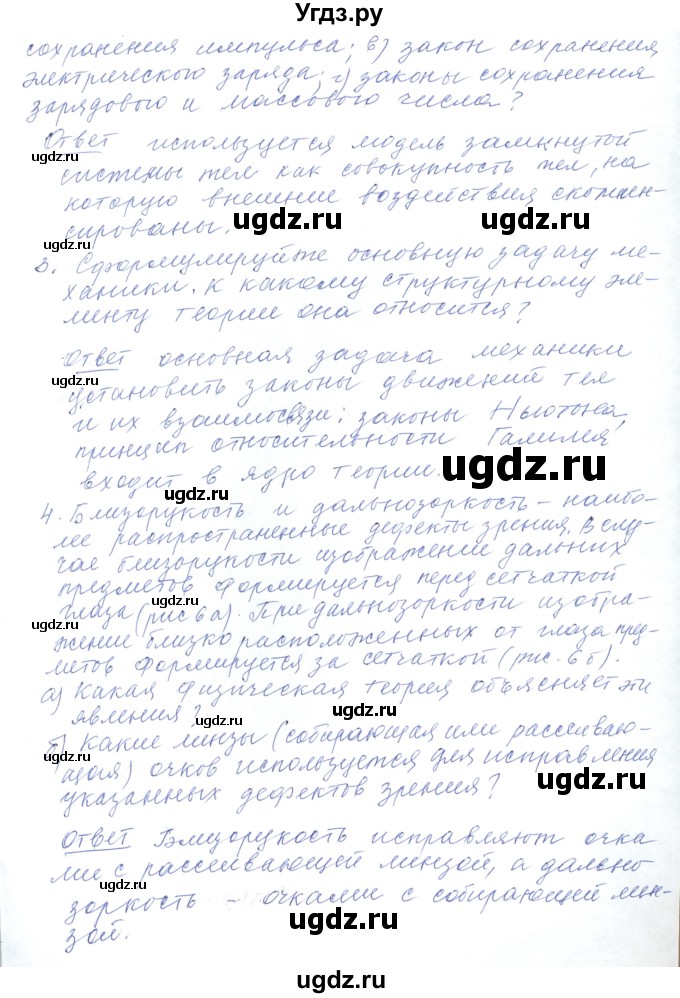 Угдз.ру
сохранения импульса; в) закон сохранения
электрического заряда; г) законы сохранения
зарядового и массового числа?
Ответ используется модель замкнутой
ugdz.ru
системы тел как совокупность тел, на
которую внешние воздействия скомпен-
ugdz.ru ugdz.ru
сированы.
3. Сформулируйте основную задачу ме-
ханики. К какому структурному эле-
менту теории она относится?
Ответ основная задача механики
ugdz.ru
установить законы движений тел
и их взаимосвязи; законы Ньютона,
принцип относительности Галилея
входит в ядро теории.
ugdz.ru
ugdz.ru
4. Близорукость и дальнозоркость – наибо-
лее распространенные дефекты зрения. В слу-
чае близорукости изображение дальних
предметов формируется перед сетчаткой
глаза (рис 6а). При дальнозоркости изобра-
ugdz.ru
жение близко расположенных от глаза пред-
метов формируется за сетчаткой (рис. 6б).
а) Какая физическая теория объясняет эти
явления?
ugdz.ru
б) Какие линзы (собирающая или рассеиваю-
щая) очков используется для исправления
ugdz.ru
указанных дефектов зрения?
Ответ Близорукость исправляют очка
ми с рассеивающей линзой, а дально
ugdz.ru
зоркость – очками с собирающей лин-
ugdz.ru
зой.
ugdz.ru